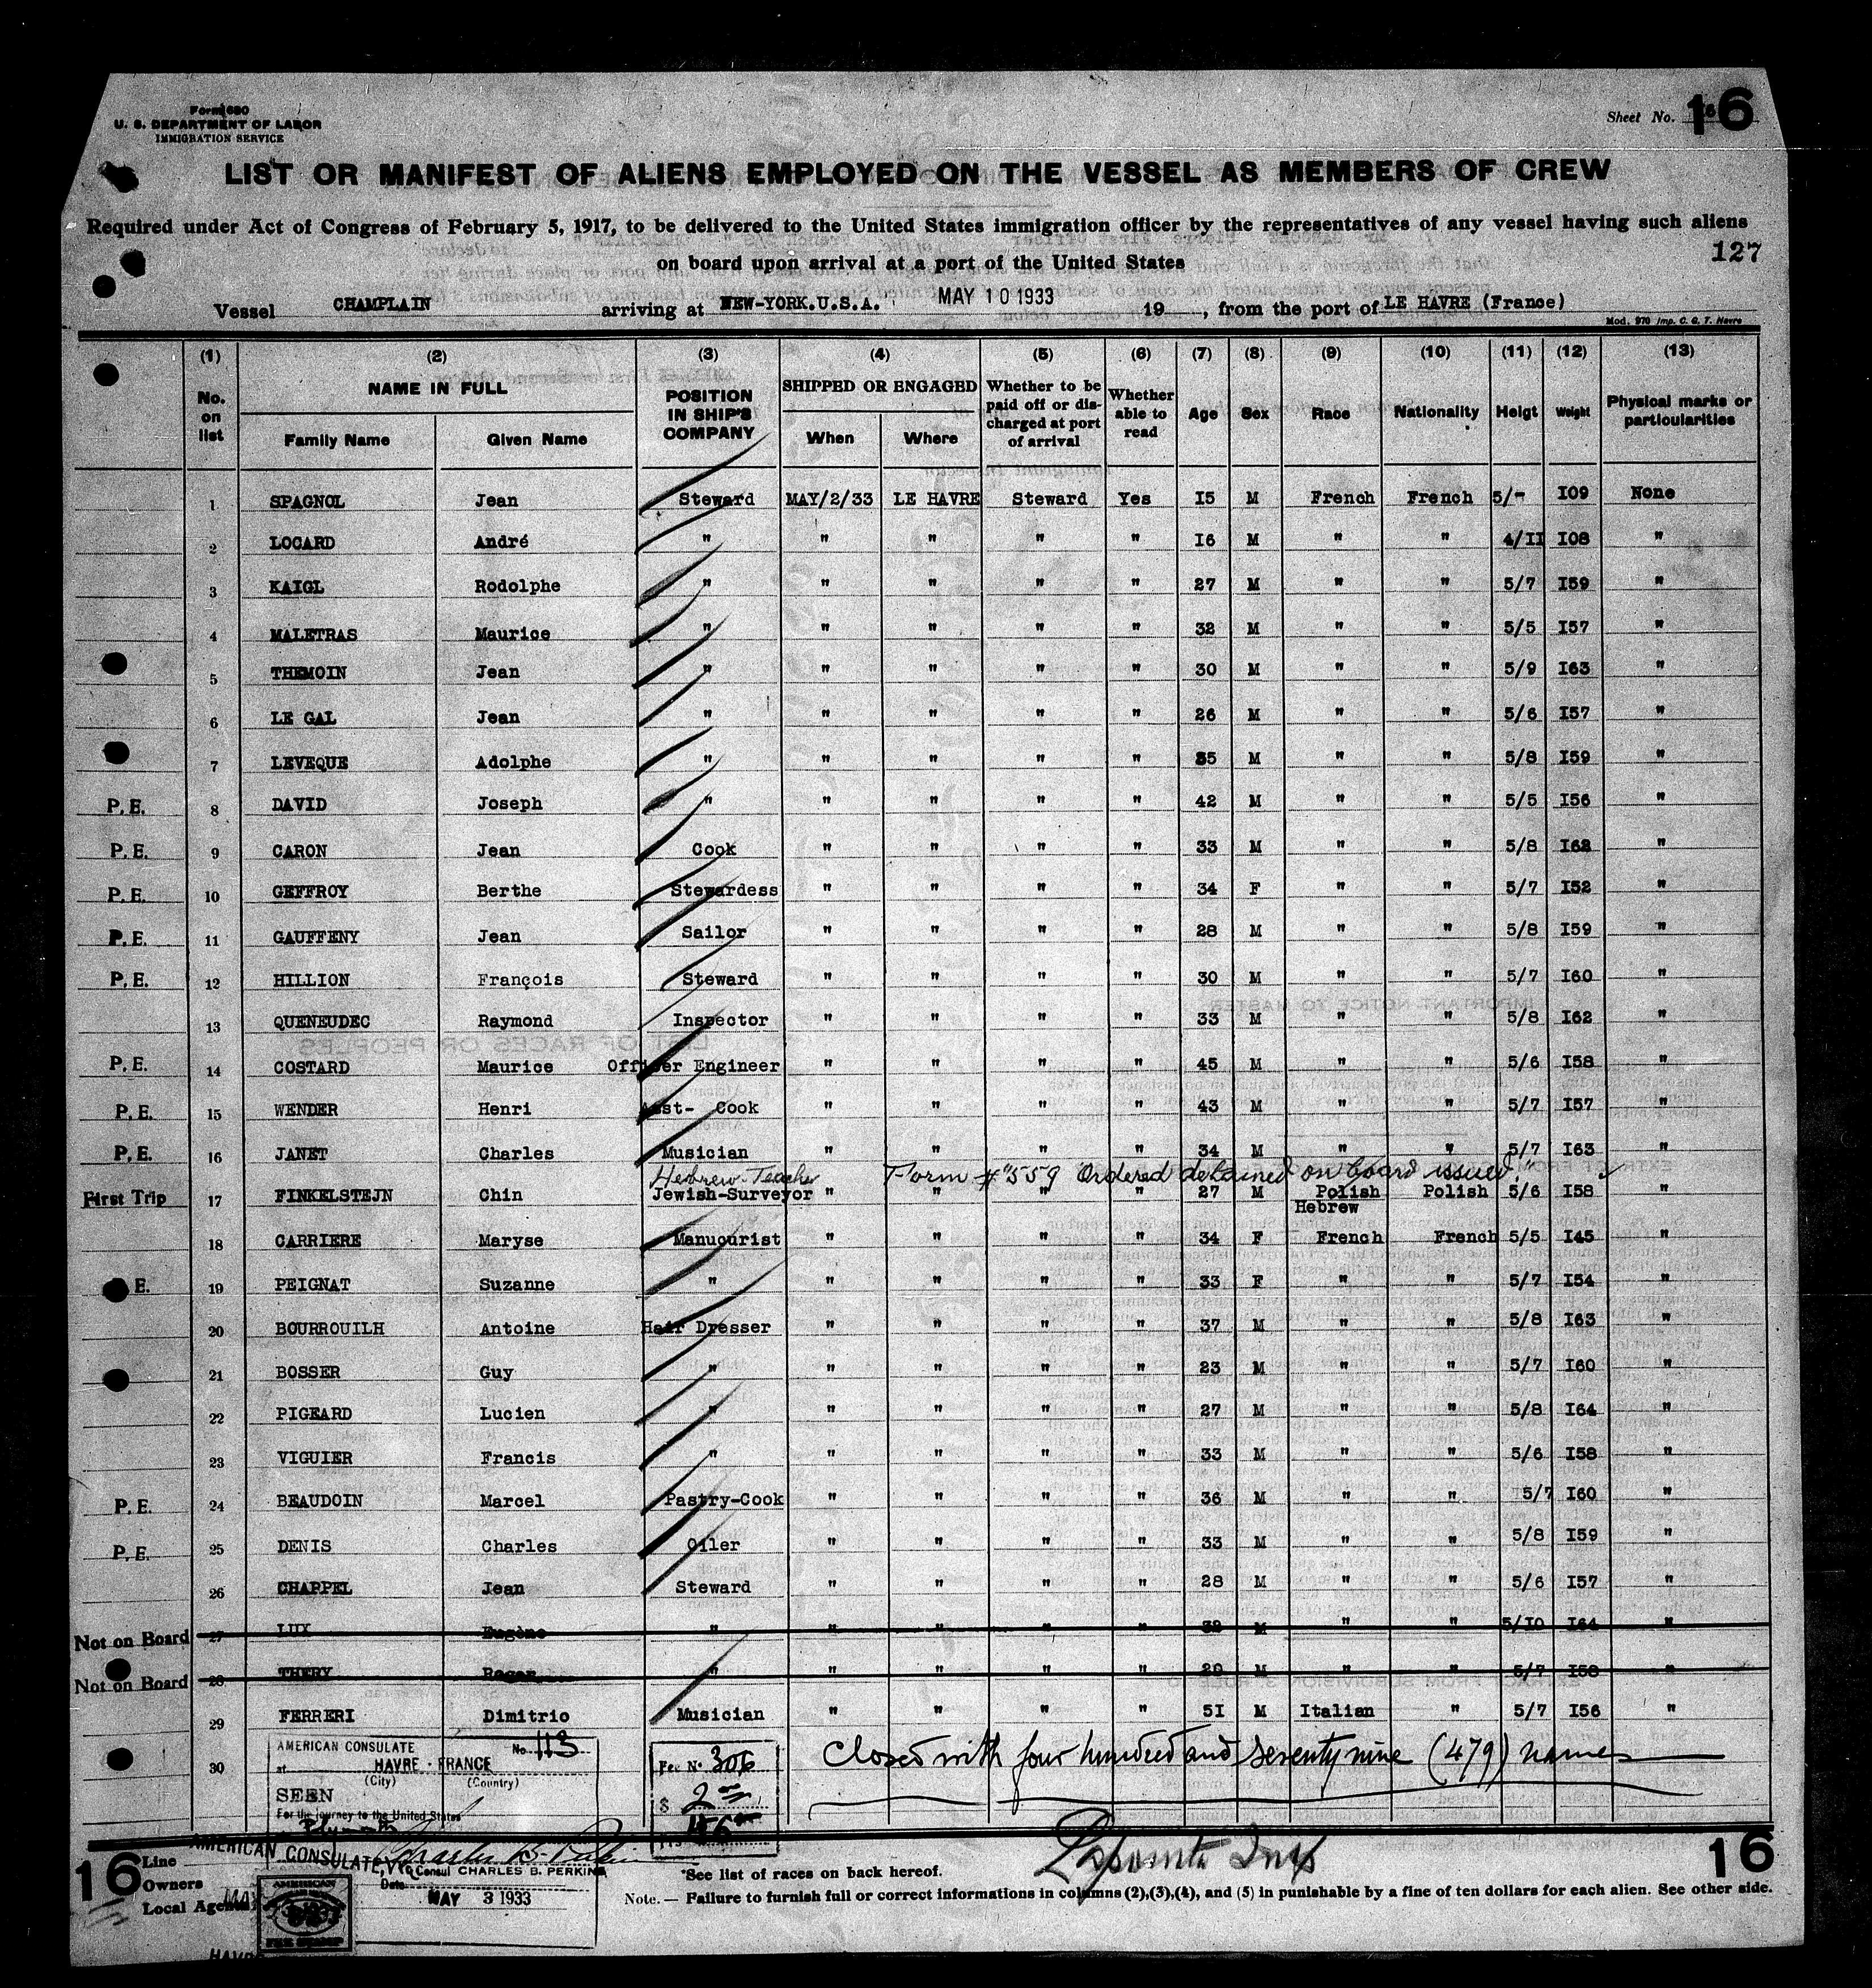 Form 680
U. S. DEPARTMENT OF LABOR
IMMIGRATION SERVICE
Sheet No. 16
LIST OR MANIFEST OF ALIENS EMPLOYED ON THE VESSEL AS MEMBERS OF CREW
Required under Act of Congress of February 5, 1917, to be delivered to the United States immigration officer by the representatives of any vessel having such aliens
on board upon arrival at a port of the United States
127
Vessel CHAMPLAIN arriving at NEW-YORK.U.S.A. MAY 10 1933 19 , from the port of LE HAVRE (France)
Mod. 970 Imp. C. G. T. Havre
(1) (2) (3) (4) (5) (6) (7) (8) (9) (10) (11) (12) (13)
No. on list NAME IN FULL Family Name Given Name POSITION IN SHIP'S COMPANY SHIPPED OR ENGAGED When Where Whether to be paid off or discharged at port of arrival Whether able to read Age Sex Race Nationality Heigt Weight Physical marks or particularities
1 SPAGNOL Jean Steward MAY/2/33 LE HAVRE Steward Yes I5 M French French 5/- I09 None
2 LOCARD André " " " " " I6 M " " 4/II I08 "
3 KAIGL Rodolphe " " " " " 27 M " " 5/7 I59 "
4 MALETRAS Maurice " " " " " 32 M " " 5/5 I57 "
5 THEMOIN Jean " " " " " 30 M " " 5/9 I63 "
6 LE GAL Jean " " " " " 26 M " " 5/6 I57 "
7 LEVEQUE Adolphe " " " " " 35 M " " 5/8 I59 "
P.E. 8 DAVID Joseph " " " " " 42 M " " 5/5 I56 "
P.E. 9 CARON Jean Cook " " " " 33 M " " 5/8 I62 "
P.E. 10 GEFFROY Berthe Stewardess " " " " 34 F " " 5/7 I52 "
P.E. 11 GAUFFENY Jean Sailor " " " " 28 M " " 5/8 I59 "
P.E. 12 HILLION François Steward " " " " 30 M " " 5/7 I60 "
13 QUENEUDEC Raymond Inspector " " " " 33 M " " 5/8 I62 "
P.E. 14 COSTARD Maurice Officer Engineer " " " " 45 M " " 5/6 I58 "
P.E. 15 WENDER Henri Asst- Cook " " " " 43 M " " 5/7 I57 "
P.E. 16 JANET Charles Musician " " " " 34 M " " 5/7 I63 "
Hebrew-Teacher Form #559 "Ordered detained on board issued."
First Trip 17 FINKELSTEJN Chin Jewish-Surveyor " " " " 27 M Polish Polish 5/6 I58 "
Hebrew
18 CARRIERE Maryse Manucurist " " " " 34 F French French 5/5 I45 "
E. 19 PEIGNAT Suzanne " " " " " 33 F " " 5/7 I54 "
20 BOURROUILH Antoine Hair Dresser " " " " 37 M " " 5/8 I63 "
21 BOSSER Guy " " " " " 23 M " " 5/7 I60 "
22 PIGEARD Lucien " " " " " 27 M " " 5/8 I64 "
23 VIGUIER Francis " " " " " 33 M " " 5/6 I58 "
P.E. 24 BEAUDOIN Marcel Pastry-Cook " " " " 36 M " " 5/7 I60 "
P.E. 25 DENIS Charles Oiler " " " " 33 M " " 5/8 I59 "
26 CHAPPEL Jean Steward " " " " 28 M " " 5/6 I57 "
Not on Board 27 LUX Eugène " " " " " 32 M " " 5/I0 I64 "
Not on Board 28 THERY Roger " " " " " 29 M " " 5/7 I58 "
29 FERRERI Dimitrio Musician " " " " 5I M Italian " 5/7 I56 "
30 Closed with four hundred and seventy nine (479) names
AMERICAN CONSULATE No. 113
at HAVRE - FRANCE
(City) (Country)
SEEN
For the journey to the United States
Plymouth
Fee No. 306
$ 2
16 Line
Owners
Local Agents
AMERICAN CONSULATE,
Charles B. Perkins
Vice Consul CHARLES B. PERKINS
Date MAY 3 1933
AMERICAN
FEE STAMP
*See list of races on back hereof.
16
Note. — Failure to furnish full or correct informations in columns (2),(3),(4), and (5) in punishable by a fine of ten dollars for each alien. See other side.